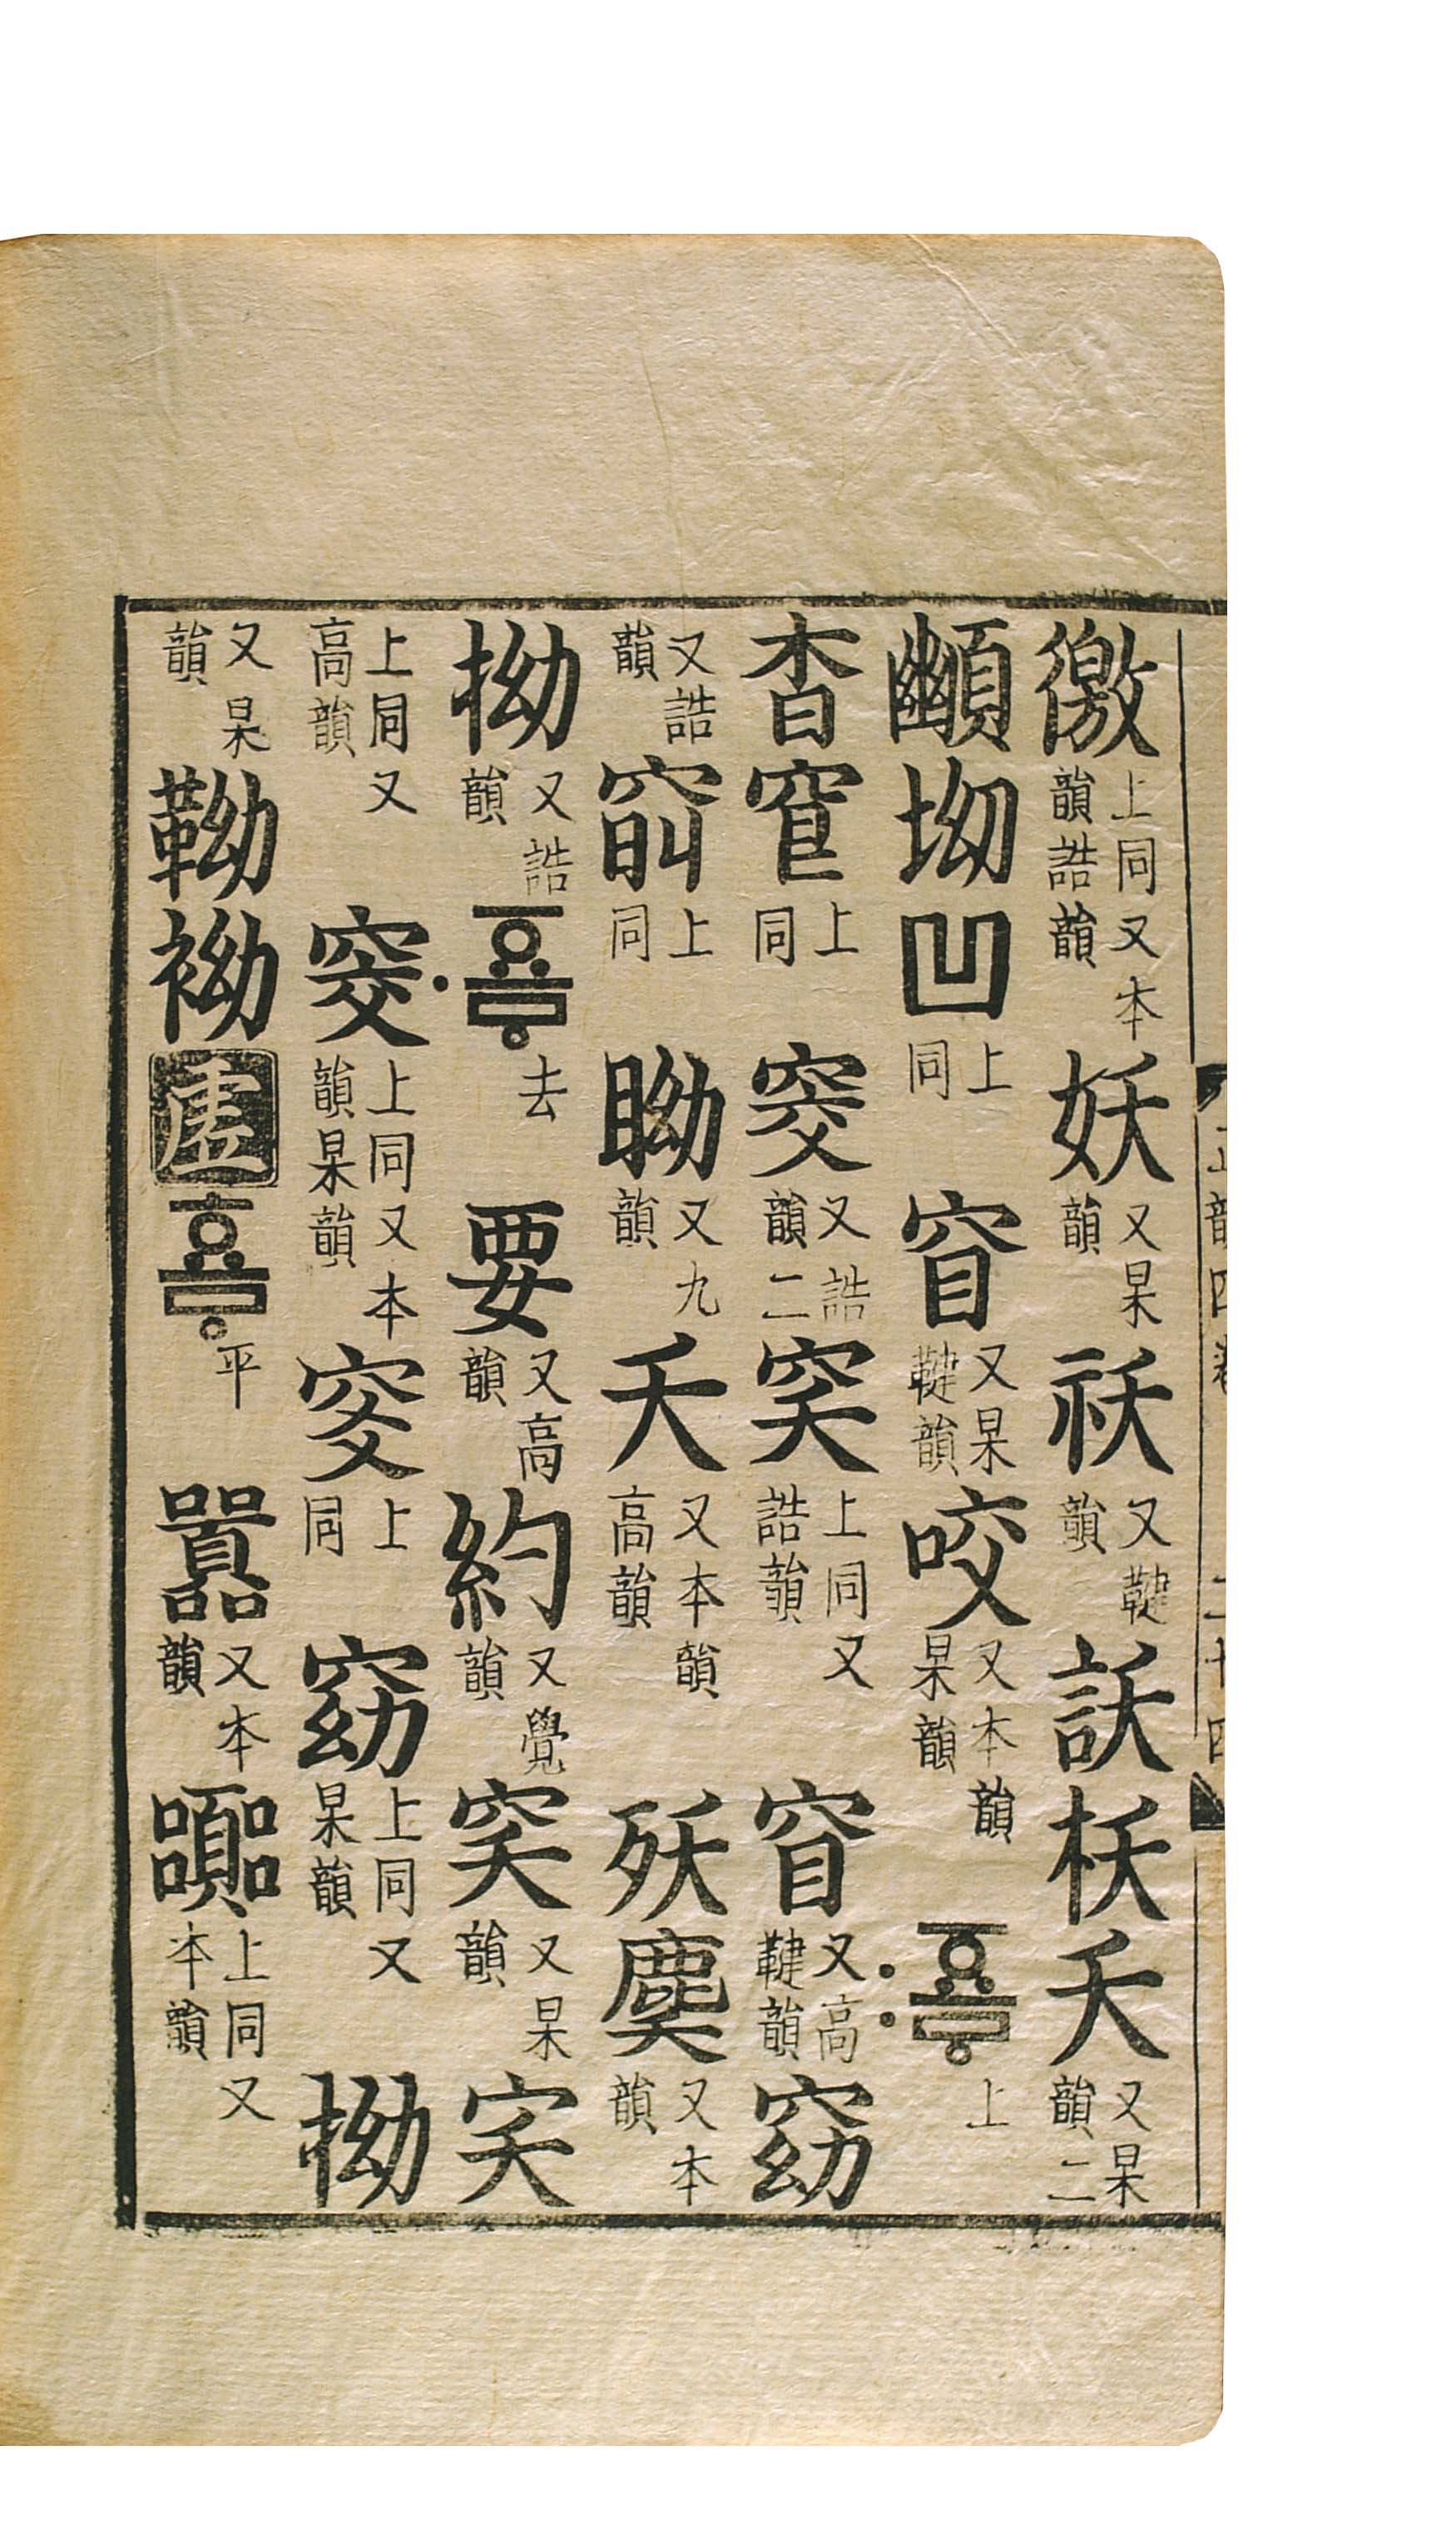 徼上同又本韻誥韻妖又杲韻祅又鞬韻訞枖夭又杲韻二
坳凹上同窅又杲鞬韻咬又本韻杲韻〯ᅙᅭᇢ上
杳上同窔又誥韻二穾上同又誥韻窅又高鞬韻窈
又誥韻上同眑又九韻夭又本韻高韻殀又本韻
拗又誥韻〮ᅙᅭᇢ去要又高韻約又覺韻穾又杲韻宎
上同又高韻窔上同又本韻杲韻上同窈上同又杲韻拗
又杲韻靿袎虛효ᇢ平囂又本韻嚻上同又本韻